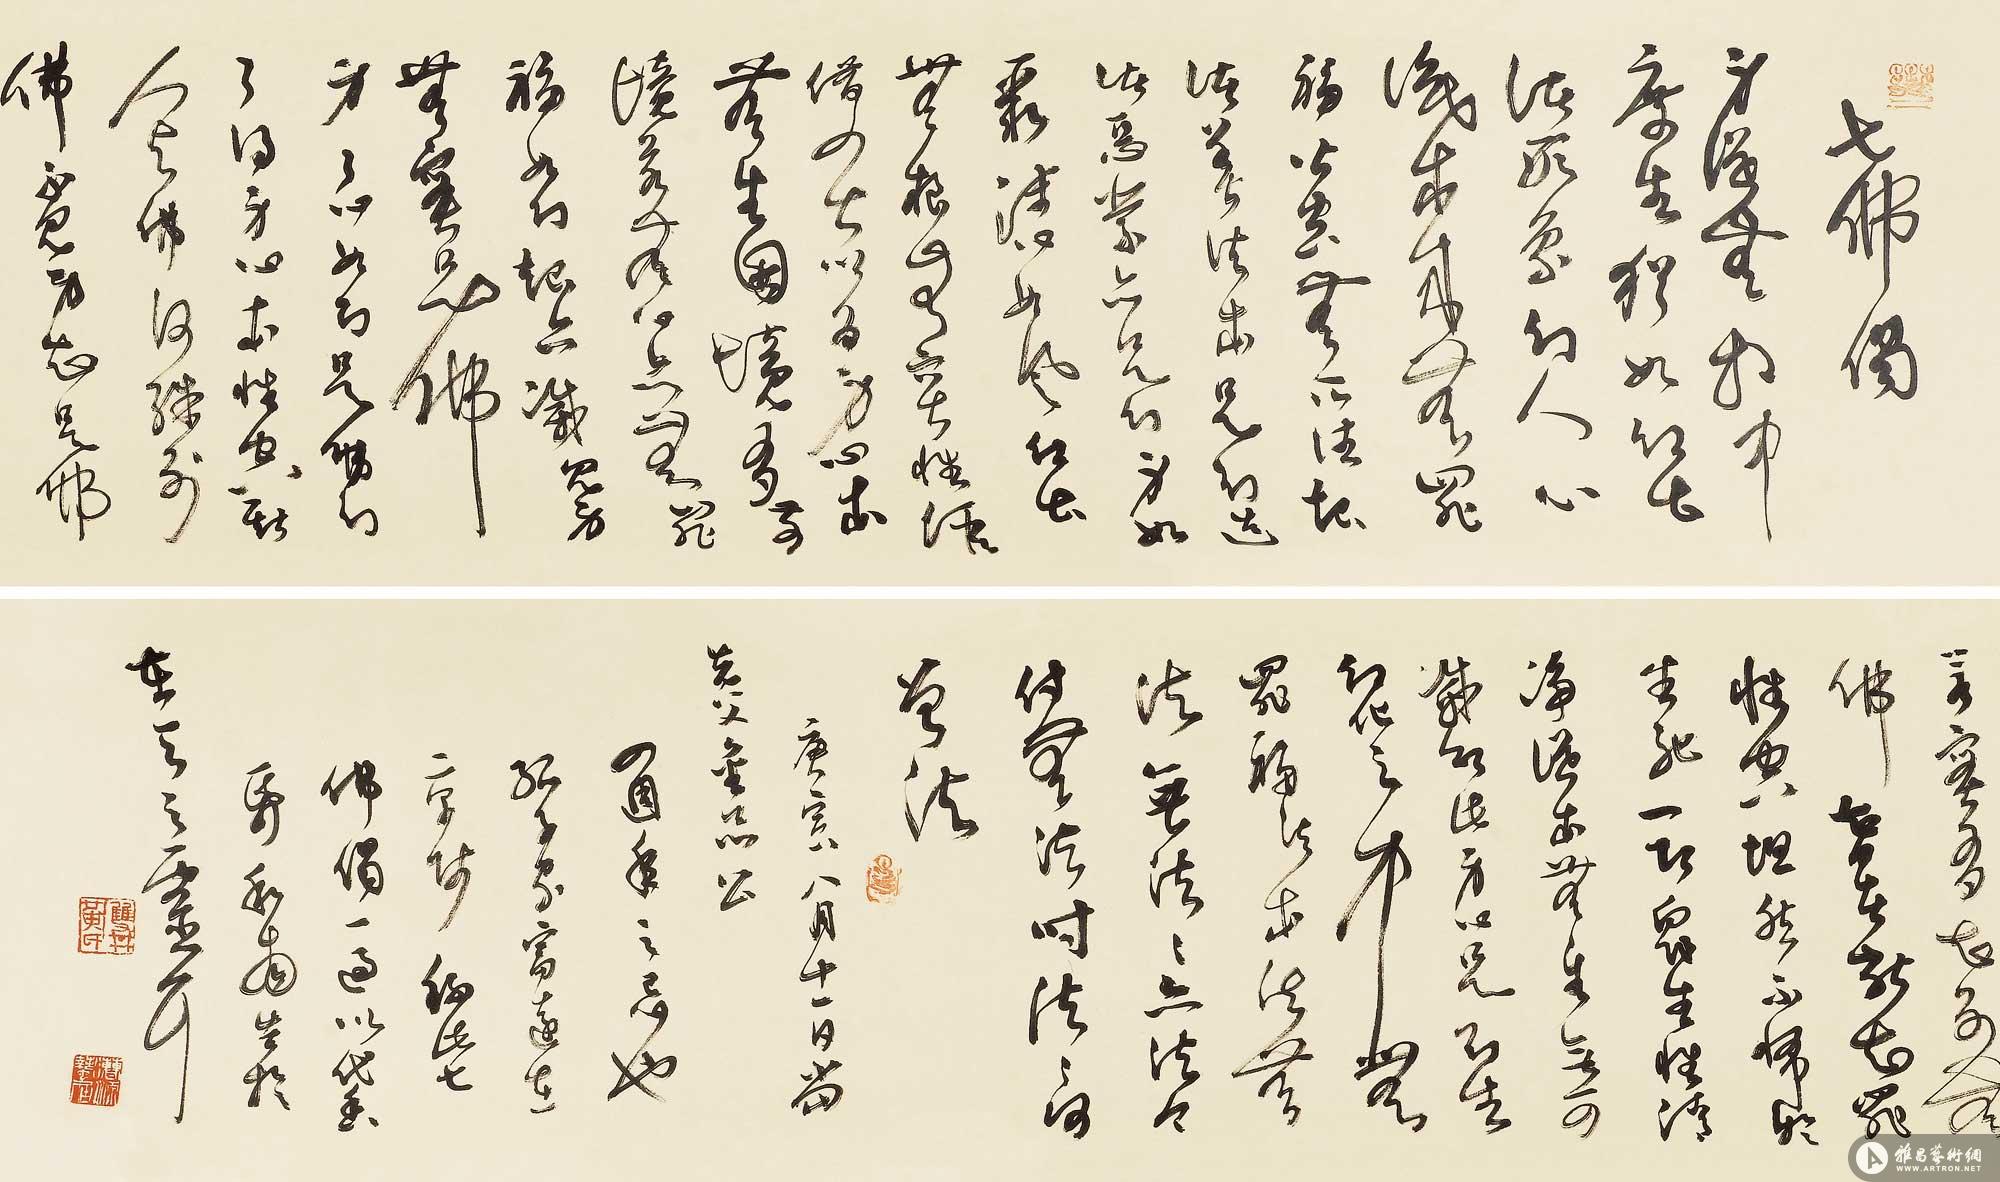 七佛偈
身從無相中
受生猶如幻出
諸形象幻人心
識本來無罪
福皆空無所住起
諸善法本是幻造
諸惡業亦是幻身如
聚沫心如風幻出
無根無實性假
借四大以為身心本
無生因境有前
境若無心亦無罪
福如幻起亦滅見身
無實是佛
身了心如幻是佛幻
了得身心本性空斯
人與佛何殊別
佛不見身知是佛
若實有知別無
佛智者能知罪
性空坦然不怖於
生死一切眾生性清
淨從本無生無可
滅即此身心是幻生
幻化之中無
罪福法本法無
法無法法亦法今
付無法時法法何
曾法
庚寅八月十一日當
先父公
四週年之忌也
孤子家富遠在
京師此七
佛偈一過以代香
於
在天之靈
雙井黃氏
雅昌藝術網
WWW.ARTRON.NET